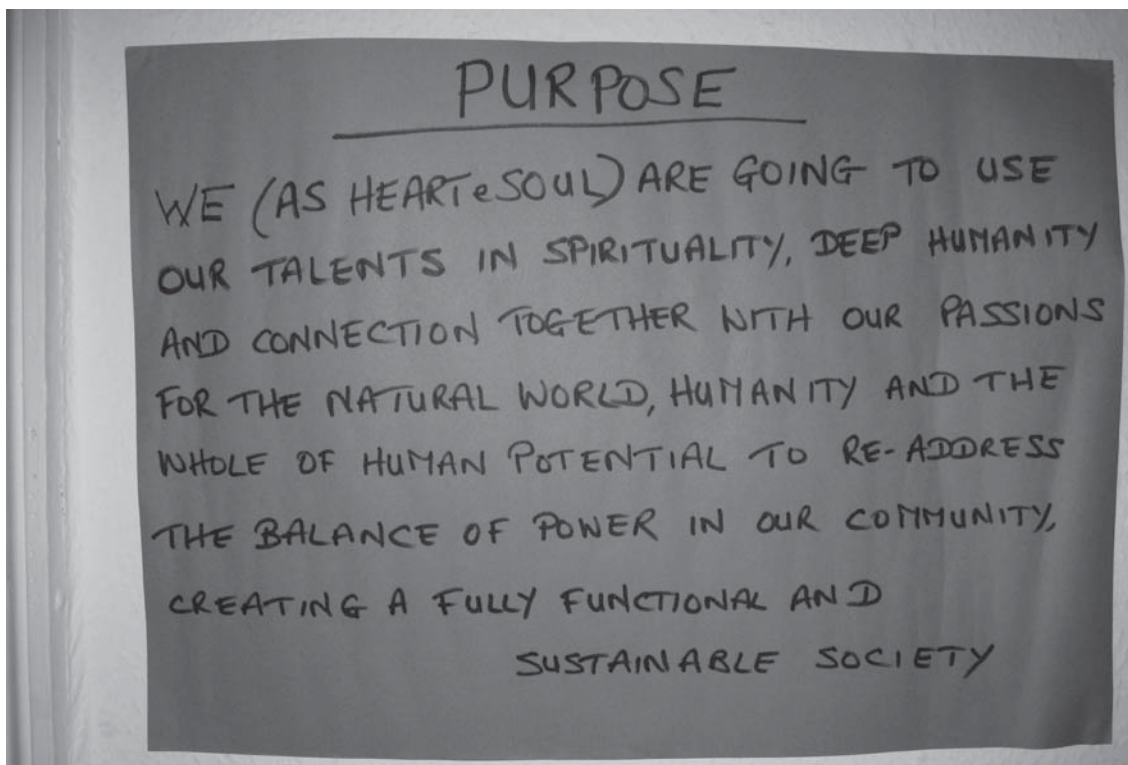 PURPOSE
WE (AS HEARTeSOUL) ARE GOING TO USE
OUR TALENTS IN SPIRITUALITY, DEEP HUMANITY
AND CONNECTION TOGETHER WITH OUR PASSIONS
FOR THE NATURAL WORLD, HUMANITY AND THE
WHOLE OF HUMAN POTENTIAL TO RE-ADDRESS
THE BALANCE OF POWER IN OUR COMMUNITY,
CREATING A FULLY FUNCTIONAL AND
SUSTAINABLE SOCIETY